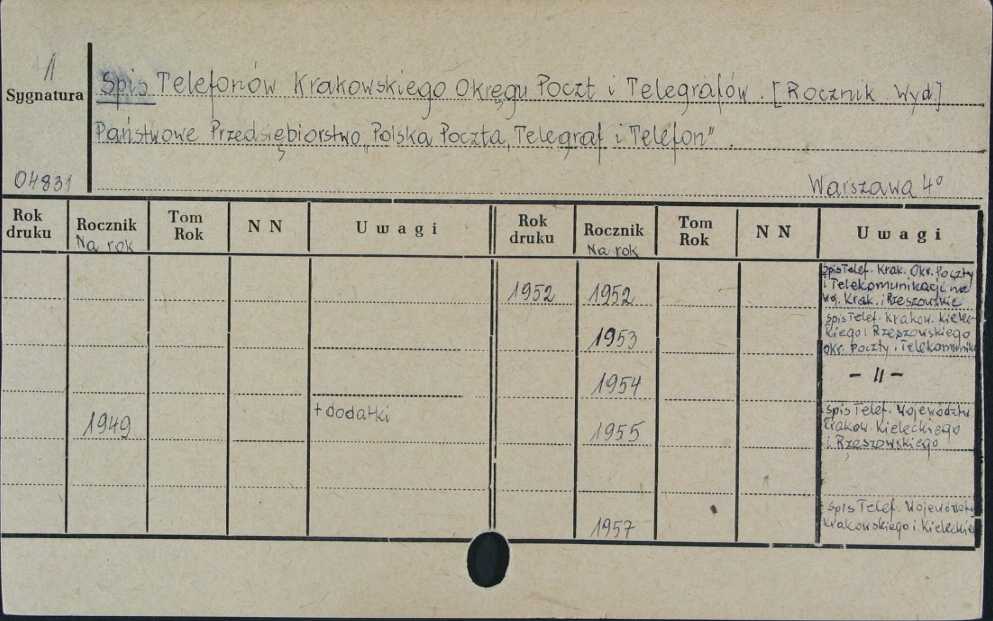 1
Sygnatura
04831
Spis Telefonów Krakowskiego Okręgu Poczt i Telegrafów. [Rocznik Wyd]
Państwowe Przedsiębiorstwo „Polska Poczta, Telegraf i Telefon".
Warszawa 4°
Rok druku
Rocznik
Na rok
Tom Rok
N N
Uwagi
Rok druku
Rocznik
Na rok
Tom Rok
N N
Uwagi
1949
+ dodatki
1952
1952
Spis Telef. Krak. Okr. Poczty
i Telekomunikacji na
woj. Krak. i Rzeszowskie
1953
Spis Telef. Krakow. Kielec-
kiego i Rzeszowskiego
Okr. Poczty i Telekomunik
1954
– 11 –
1955
Spis Telef. Województw
Krakow. Kieleckiego
i Rzeszowskiego
1957
Spis Telef. Województw
Krakowskiego i Kieleckie